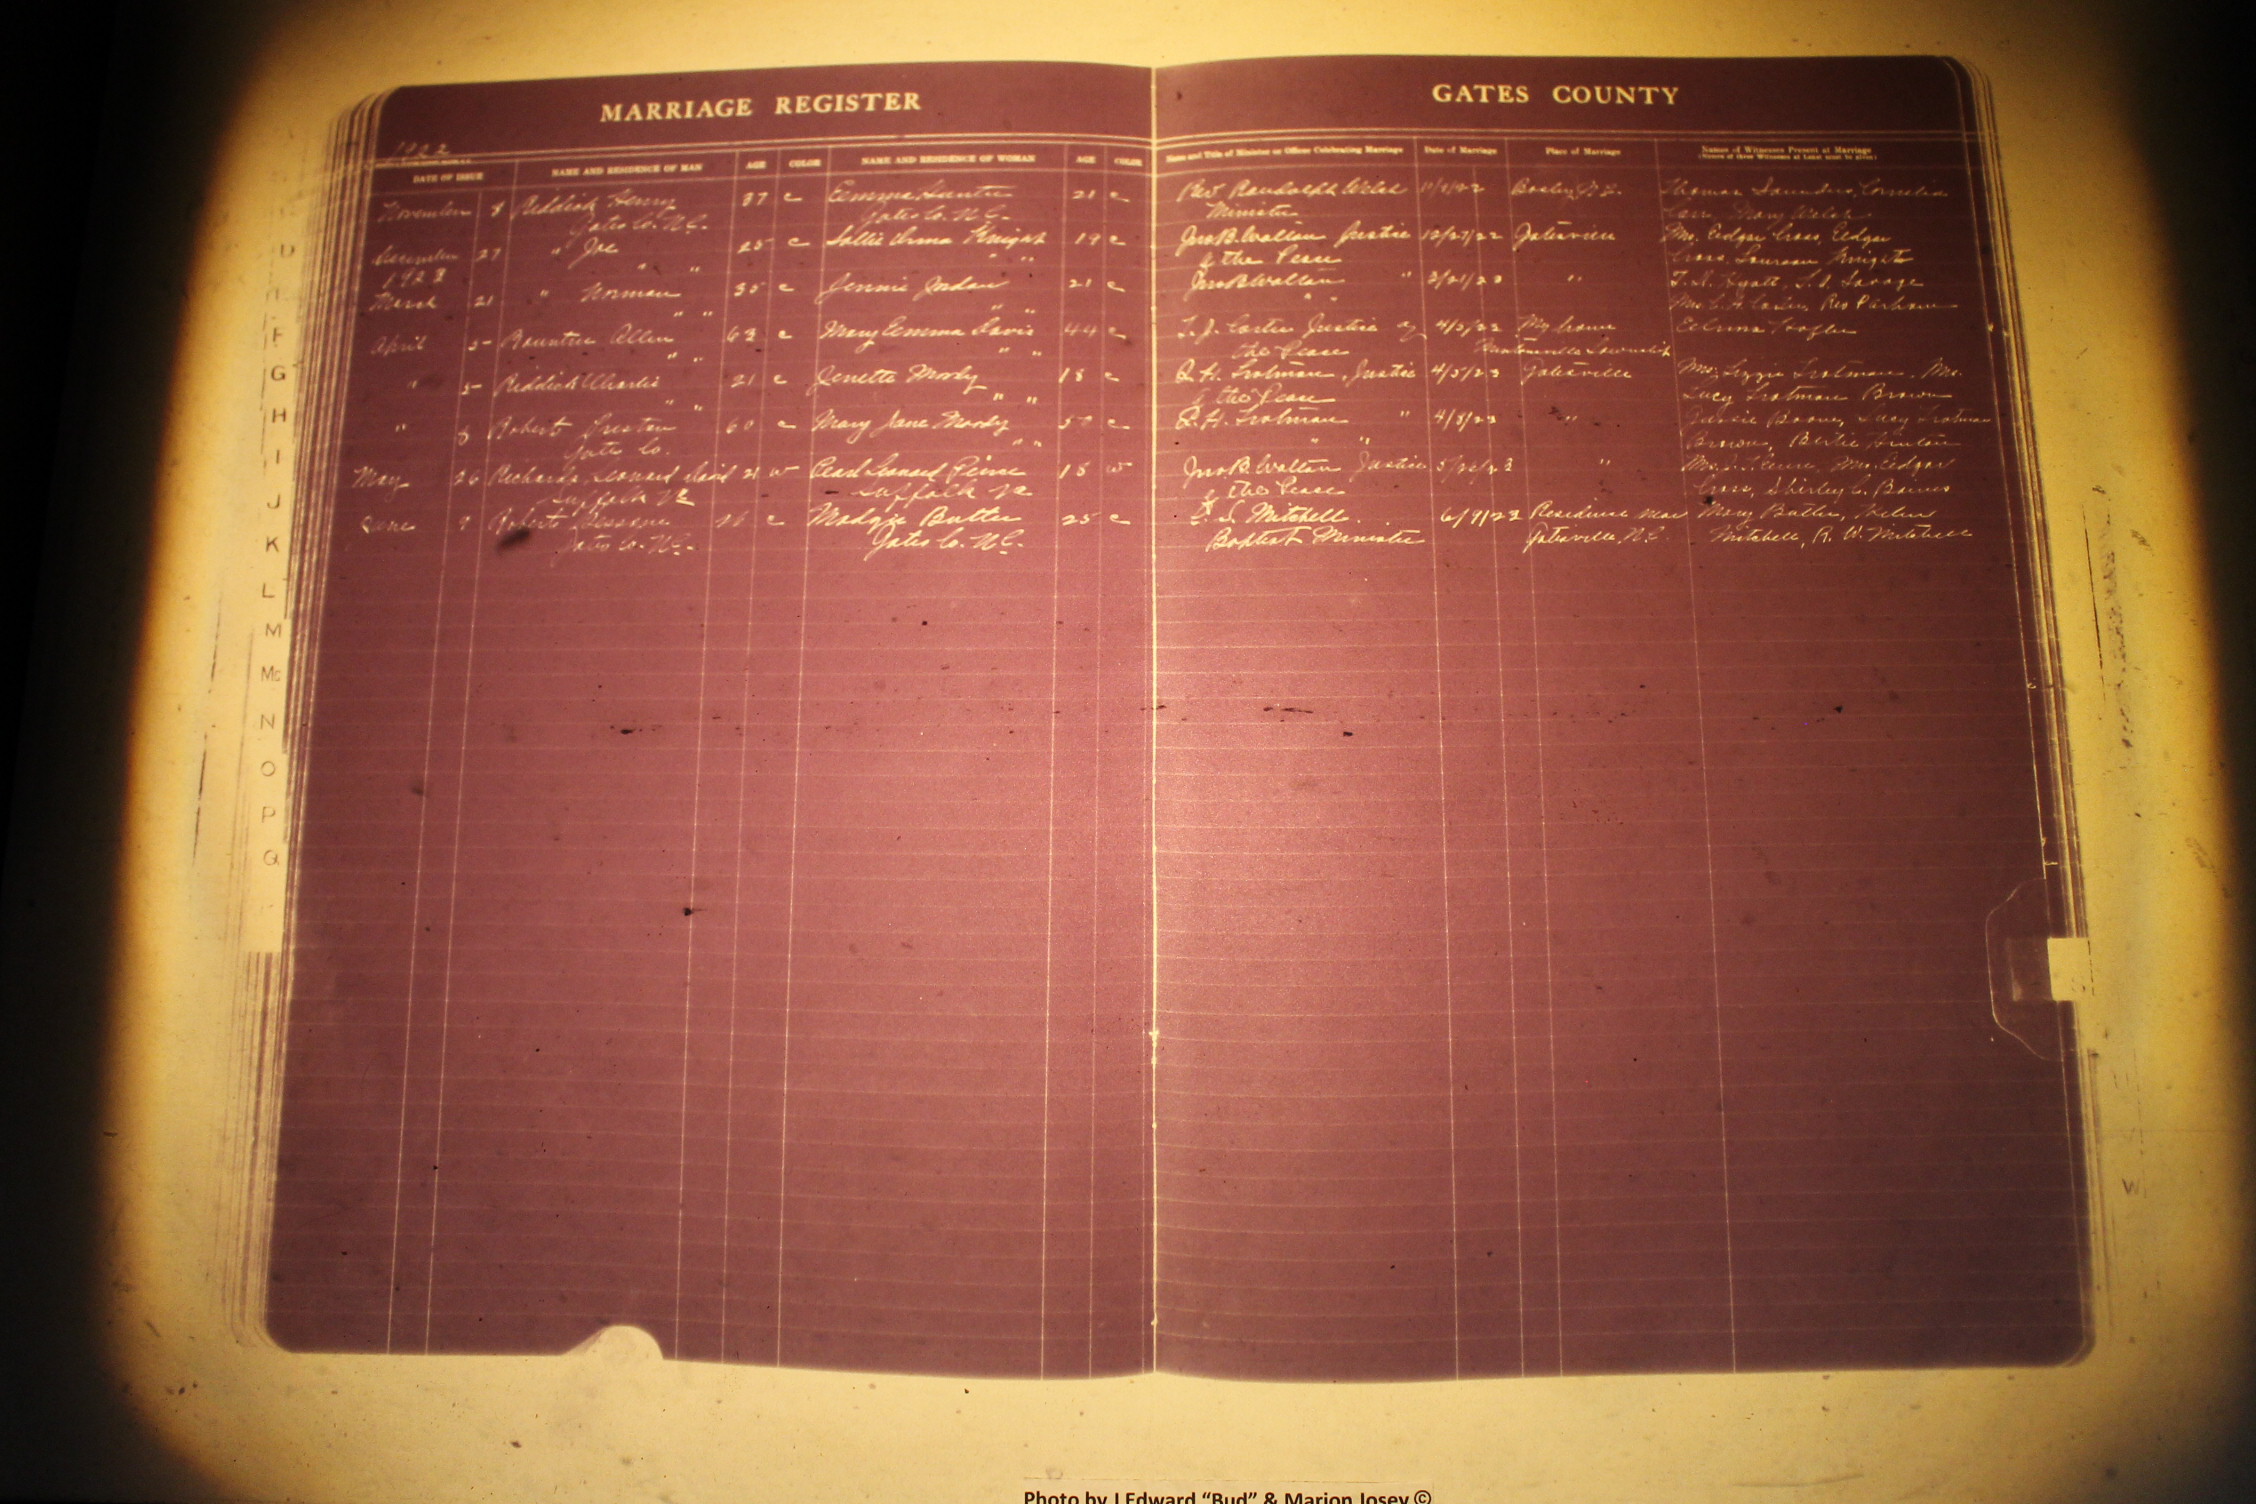 MARRIAGE REGISTER
GATES COUNTY
1922
DATE OF ISSUE NAME AND RESIDENCE OF MAN AGE COLOR NAME AND RESIDENCE OF WOMAN AGE COLOR Name and Title of Minister or Officer Celebrating Marriage Date of Marriage Place of Marriage Names of Witnesses Present at Marriage
(Names of three Witnesses at Least must be given)
November 8 Riddick Henry 37 c Emma 21 c Rev. Randolph Welch 11/ /22 Thomas Saunders, Cornelia
Gates Co. N.C. Gates Co. N.C. Minister Mary Welch
December 27 " Joe 25 c Sallie Anna Knight 19 c Jno B. Walton Justice 12/27/22 Gatesville Mrs. Edgar Cross, Edgar
1923 " " " " of the Peace Cross, Knight
March 21 " Norman 35 c Jennie Jordan 21 c Jno B Walton " 3/21/23 " Savage
" " " " " " Mrs.
April 5 Rountree Allen 63 c Mary Emma Davis 44 c T. J. Carter Justice of 4/5/23 My home
" " " " the Peace Township
" 5 Riddick Charlie 21 c Jenette Moody 18 c L. H. Trotman, Justice 4/5/23 Gatesville Mrs. Lizzie Trotman, Mrs.
" " " " of the Peace Lucy Trotman Brown
" 8 Robert Preston 60 c Mary Jane Moody 50 c L. H. Trotman " 4/8/23 " Boone, Lucy Trotman
Gates Co. " " " " Brown, Bertie Hinton
May 26 Richards Leonard 21 w Pearl Leonard 18 w Jno B. Walton Justice 5/26/23 " Mrs. Edgar
Suffolk Va Suffolk Va of the Peace Cross, Shirley C. Baines
June 9 Roberts c Madge Butler 25 c Mitchell 6/9/23 Residence near Mary Butler, Helen
Gates Co. N.C. Gates Co. N.C. Baptist Minister Gatesville, N.C. Mitchell, R. W. Mitchell
D
F
G
H
I
J
K
L
M
Mc
N
O
P
Q
W
Photo by J Edward “Bud” & Marion Josey ©